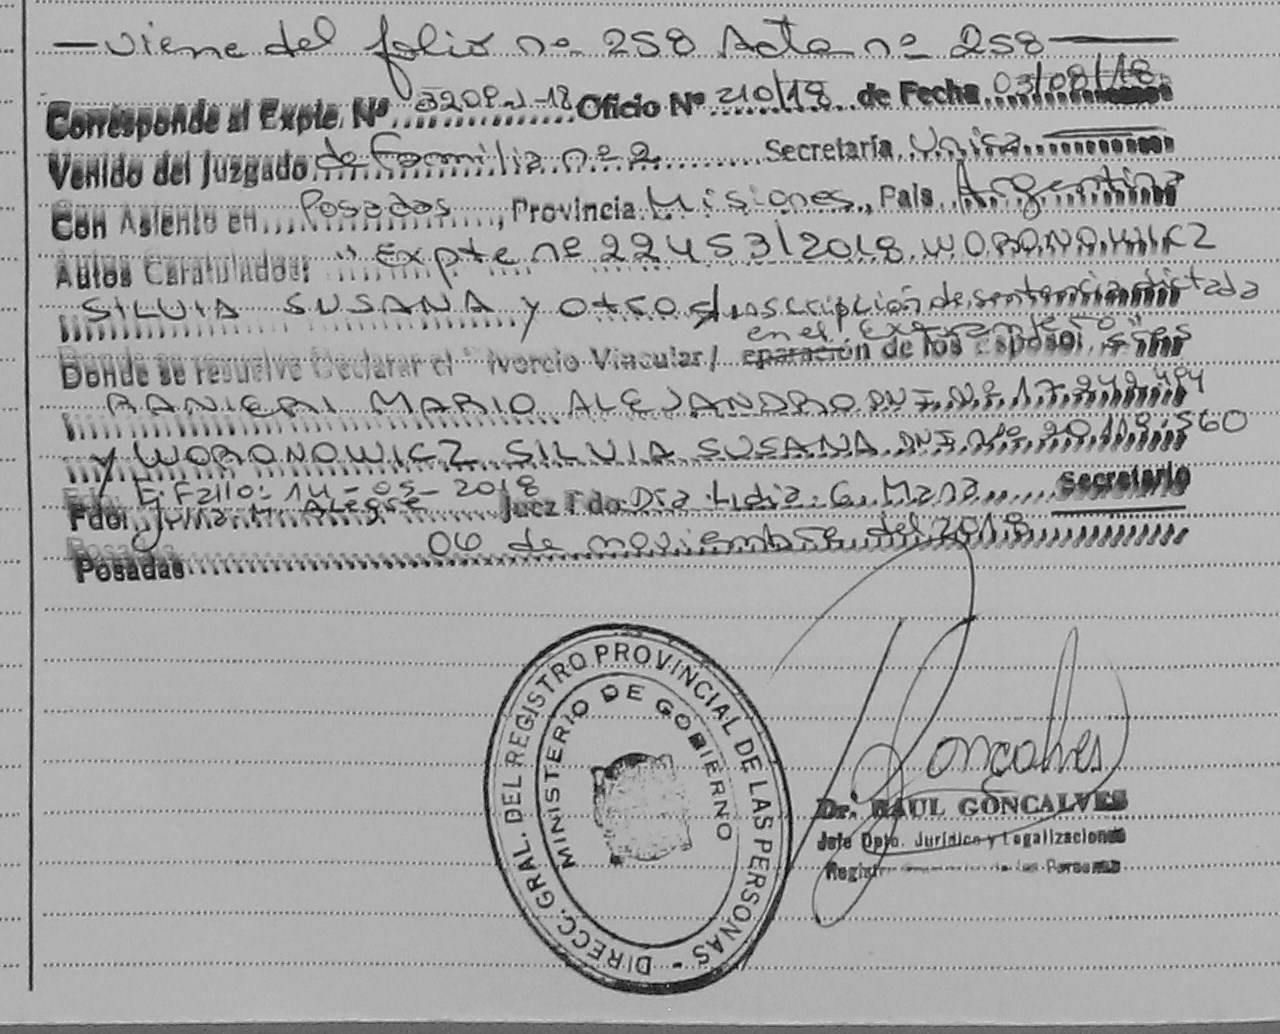 — viene del folio nº 258 Acta nº 258 —
Corresponde al Expte. Nº 3209-J-18 Oficio Nº 210/18 de Fecha 03/08/18
Venido del Juzgado de Familia nº 2 Secretaría Unica
Con Asiento en Posadas, Provincia Misiones, Pais Argentina
Autos Caratulados: "Expte nº 22453/2018 WORONOWICZ
SILVIA SUSANA y otro s/inscripción de sentencia dictada
en el Extranjero"
Donde se resuelve Declarar el Divorcio Vincular/ eparación de los Esposos
RANIERI MARIO ALEJANDRO DNI Nº 17.242.484
y WORONOWICZ SILVIA SUSANA DNI Nº 20.118.560
F. Fallo: 14-05-2018
Fdo. M. Alegre Juez Fdo Dra Lidia G. Secretario
Posadas 06 de noviembre del 2018
DIRECC. GRAL. DEL REGISTRO PROVINCIAL DE LAS PERSONAS -
MINISTERIO DE GOBIERNO
Goncalves
Dr. RAUL GONCALVES
Jefe Dpto. Jurídico y Legalizaciones
de las Personas